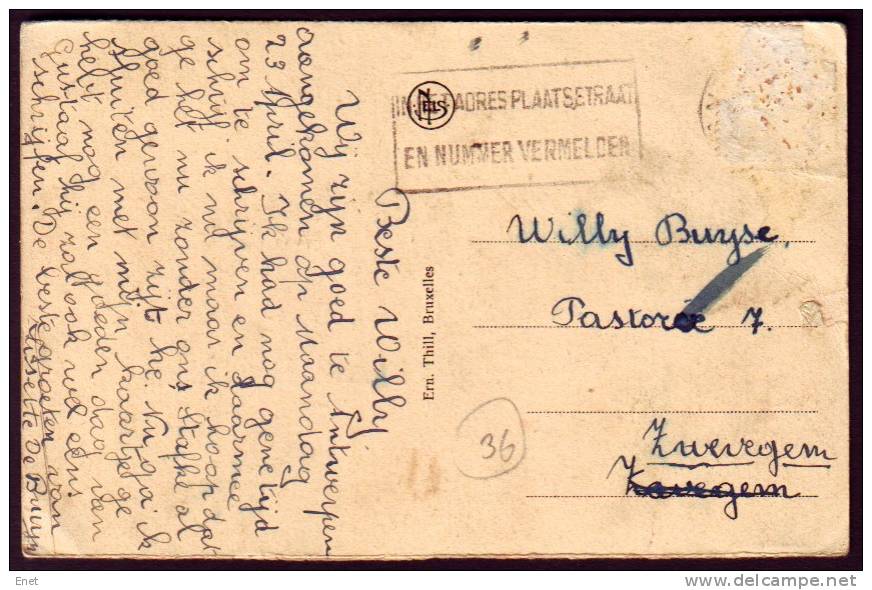 Beste Willy
Wij zijn goed te Antwerpen
aangekomen op Maandag
23 April. Ik had nog gene tijd
om te schrijven en daarmee
schrijf ik nu maar ik hoop dat
ge het nu zonder ons Stafke al
goed gewoon zijt he. Nu ga ik
sluiten met mijn kaartje ge
hebt nog een goeden dag van
Gustaaf hij zal ook wel eens
schrijfen. De beste groeten van
Lisette De Bruyn
NELS
IN HET ADRES PLAATS, STRAAT
EN NUMMER VERMELDEN
Ern. Thill, Bruxelles
Willy Buyse,
Pastorie 7.
36
Zwevegem
Zavegem
Enet
delcampe.net